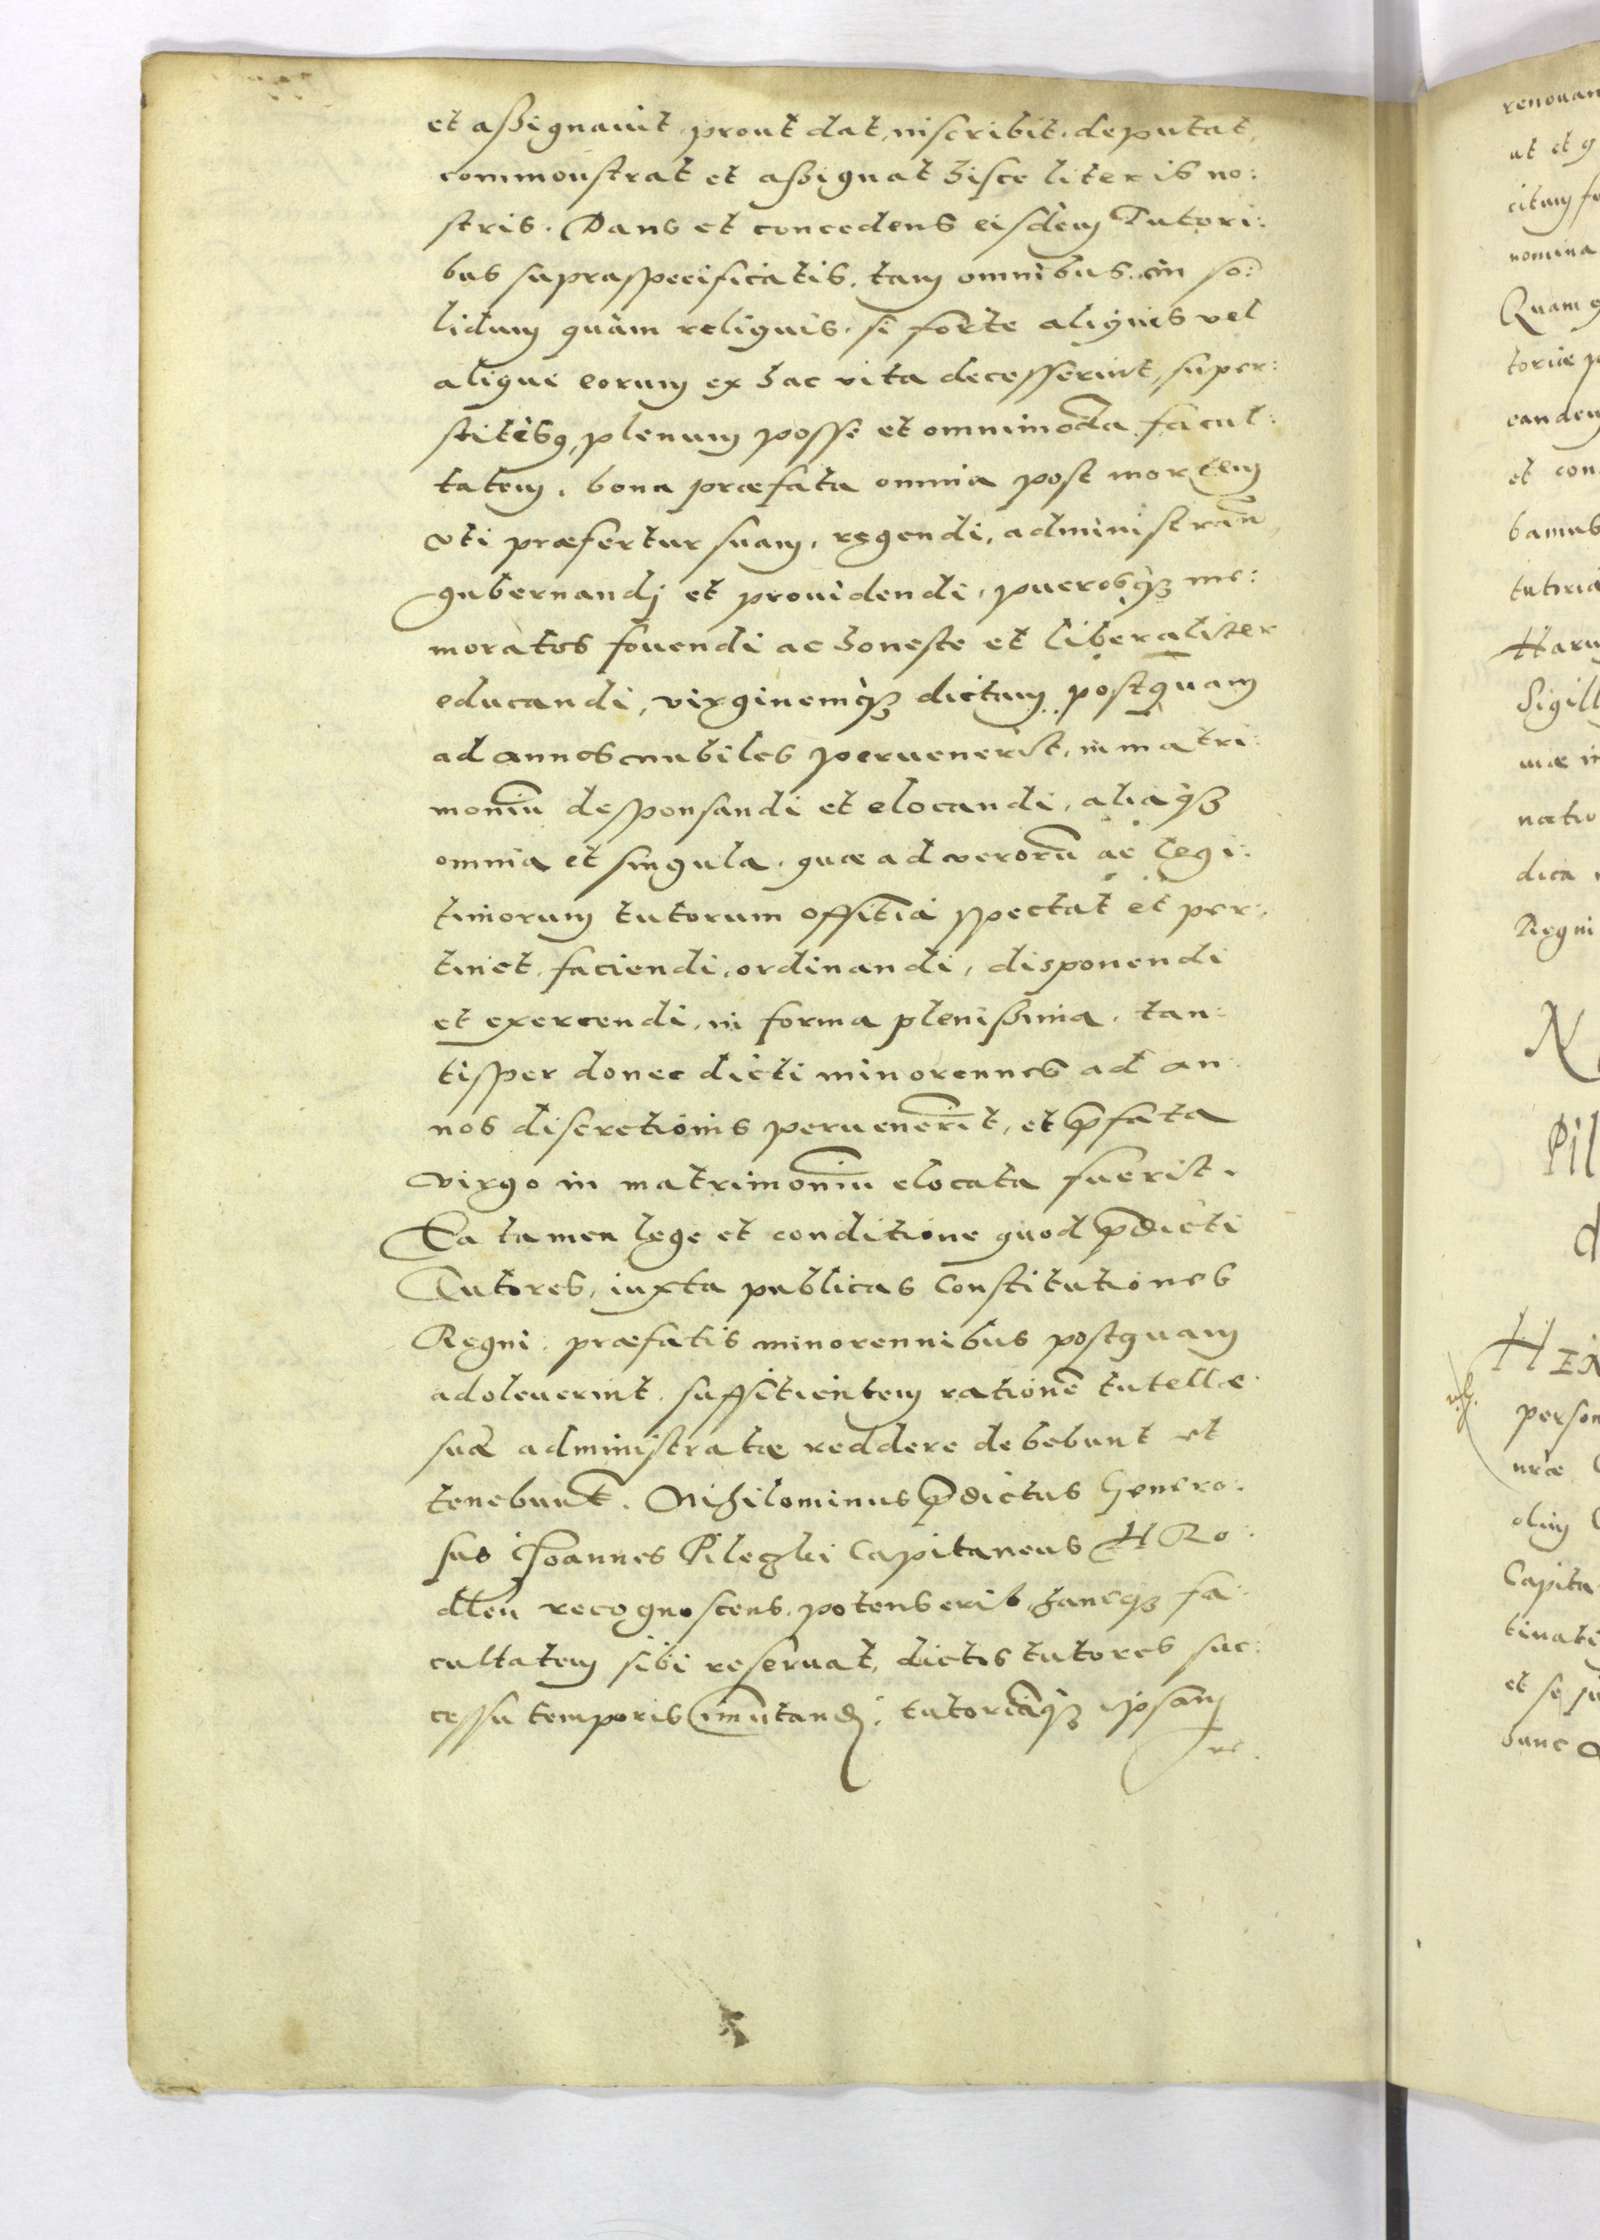 et aßignauit, prout dat, inscribit, deputat,
commonstrat et aßignat hisce literis no:
stris. Dans et concedens eisdem Tutori:
bus supraspecificatis, tam omnibus in so:
lidum quàm reliquis, si forte aliquis vel
aliqui eorum ex hac vita decesserint, super:
stitibq, plenum posse et omnimodā facul:
tatem, bona præfata omnia post mortem
vti præfertur suam, regendi, administrān
gubernandj et prouidendi, puerosqȝ me:
moratos fouendi ac honeste et liberaliter
educandi, virginemqȝ dictam postquam
ad annos nubiles peruenerit, in matri:
moniū desponsandi et elocandi, aliaqȝ
omnia et singula, quæ ad verorū ac legi:
timorum tutorum offitia spectat et per:
tinet, faciendi, ordinandi, disponendi
et exercendi, in forma plenißima, tan:
tisper donec dicti minorennes ad an:
nos discretionis peruenerīt, et p̄fata
virgo in matrimoniū elocata fuerit.
Ea tamen lege et conditione quod p̄dicti
Tutores, iuxta publicas Constitutiones
Regni, præfatis minorennibus postquam
adoleuerint, suffitientem rationē tutellæ
suæ administratæ reddere debebunt et
tenebunt. Nihilominus p̄dictus Genero:
sus Joannes Pileczki Capitaneus HRo:
dłeń recognoscens, potens erit, hancqȝ fa:
cultatem sibi reseruat, dictos tutores suc:
cessu temporis īmutandj, tutoriāqȝ ipsam
re:
renouan
ut et q
nomina
Quam q
toriæ p
eandem
et con
bamus
tutoria
Harum
Sigill
natio
dica
Regni
Pil
d
person
olim
Capita
tinati
et se
hanc